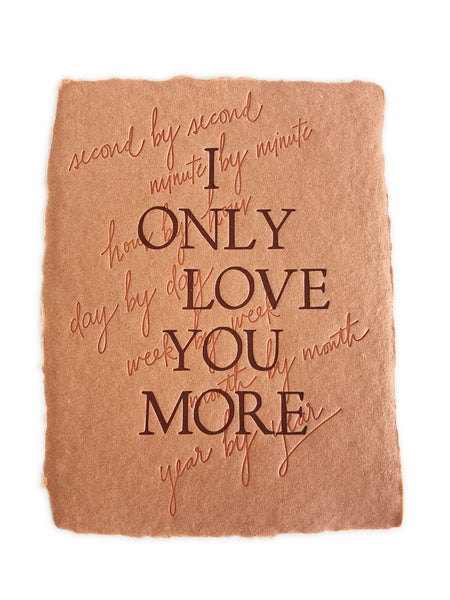 second by second
minute by minute
I
hour by hour
ONLY
day by day
LOVE
week by week
YOU
month by month
MORE
year by year